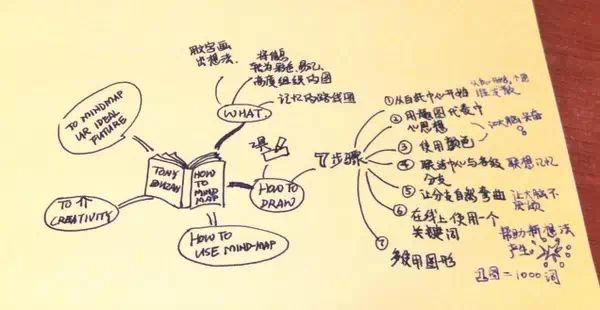 用文字画
出想法
将信息
转为彩色、易记、
高度组织的图
记忆的路线图
WHAT
TO MINDMAP
UR IDEAL
FUTURE
TONY
BUZAN
HOW
TO
MIND
MAP
TO 个
CREATIVITY
HOW TO
USE MIND-MAP
HOW TO
DRAW
工具
7步骤
①从白纸中心开始
②用趣图代表中
心思想
③使用颜色
让大脑兴奋
④联结中心与各级
分支
联想记忆
⑤让分支自然弯曲
让大脑不
厌烦
⑥在线上使用一个
关键词
帮助新想法
产生
⑦多使用图形
1图=1000词